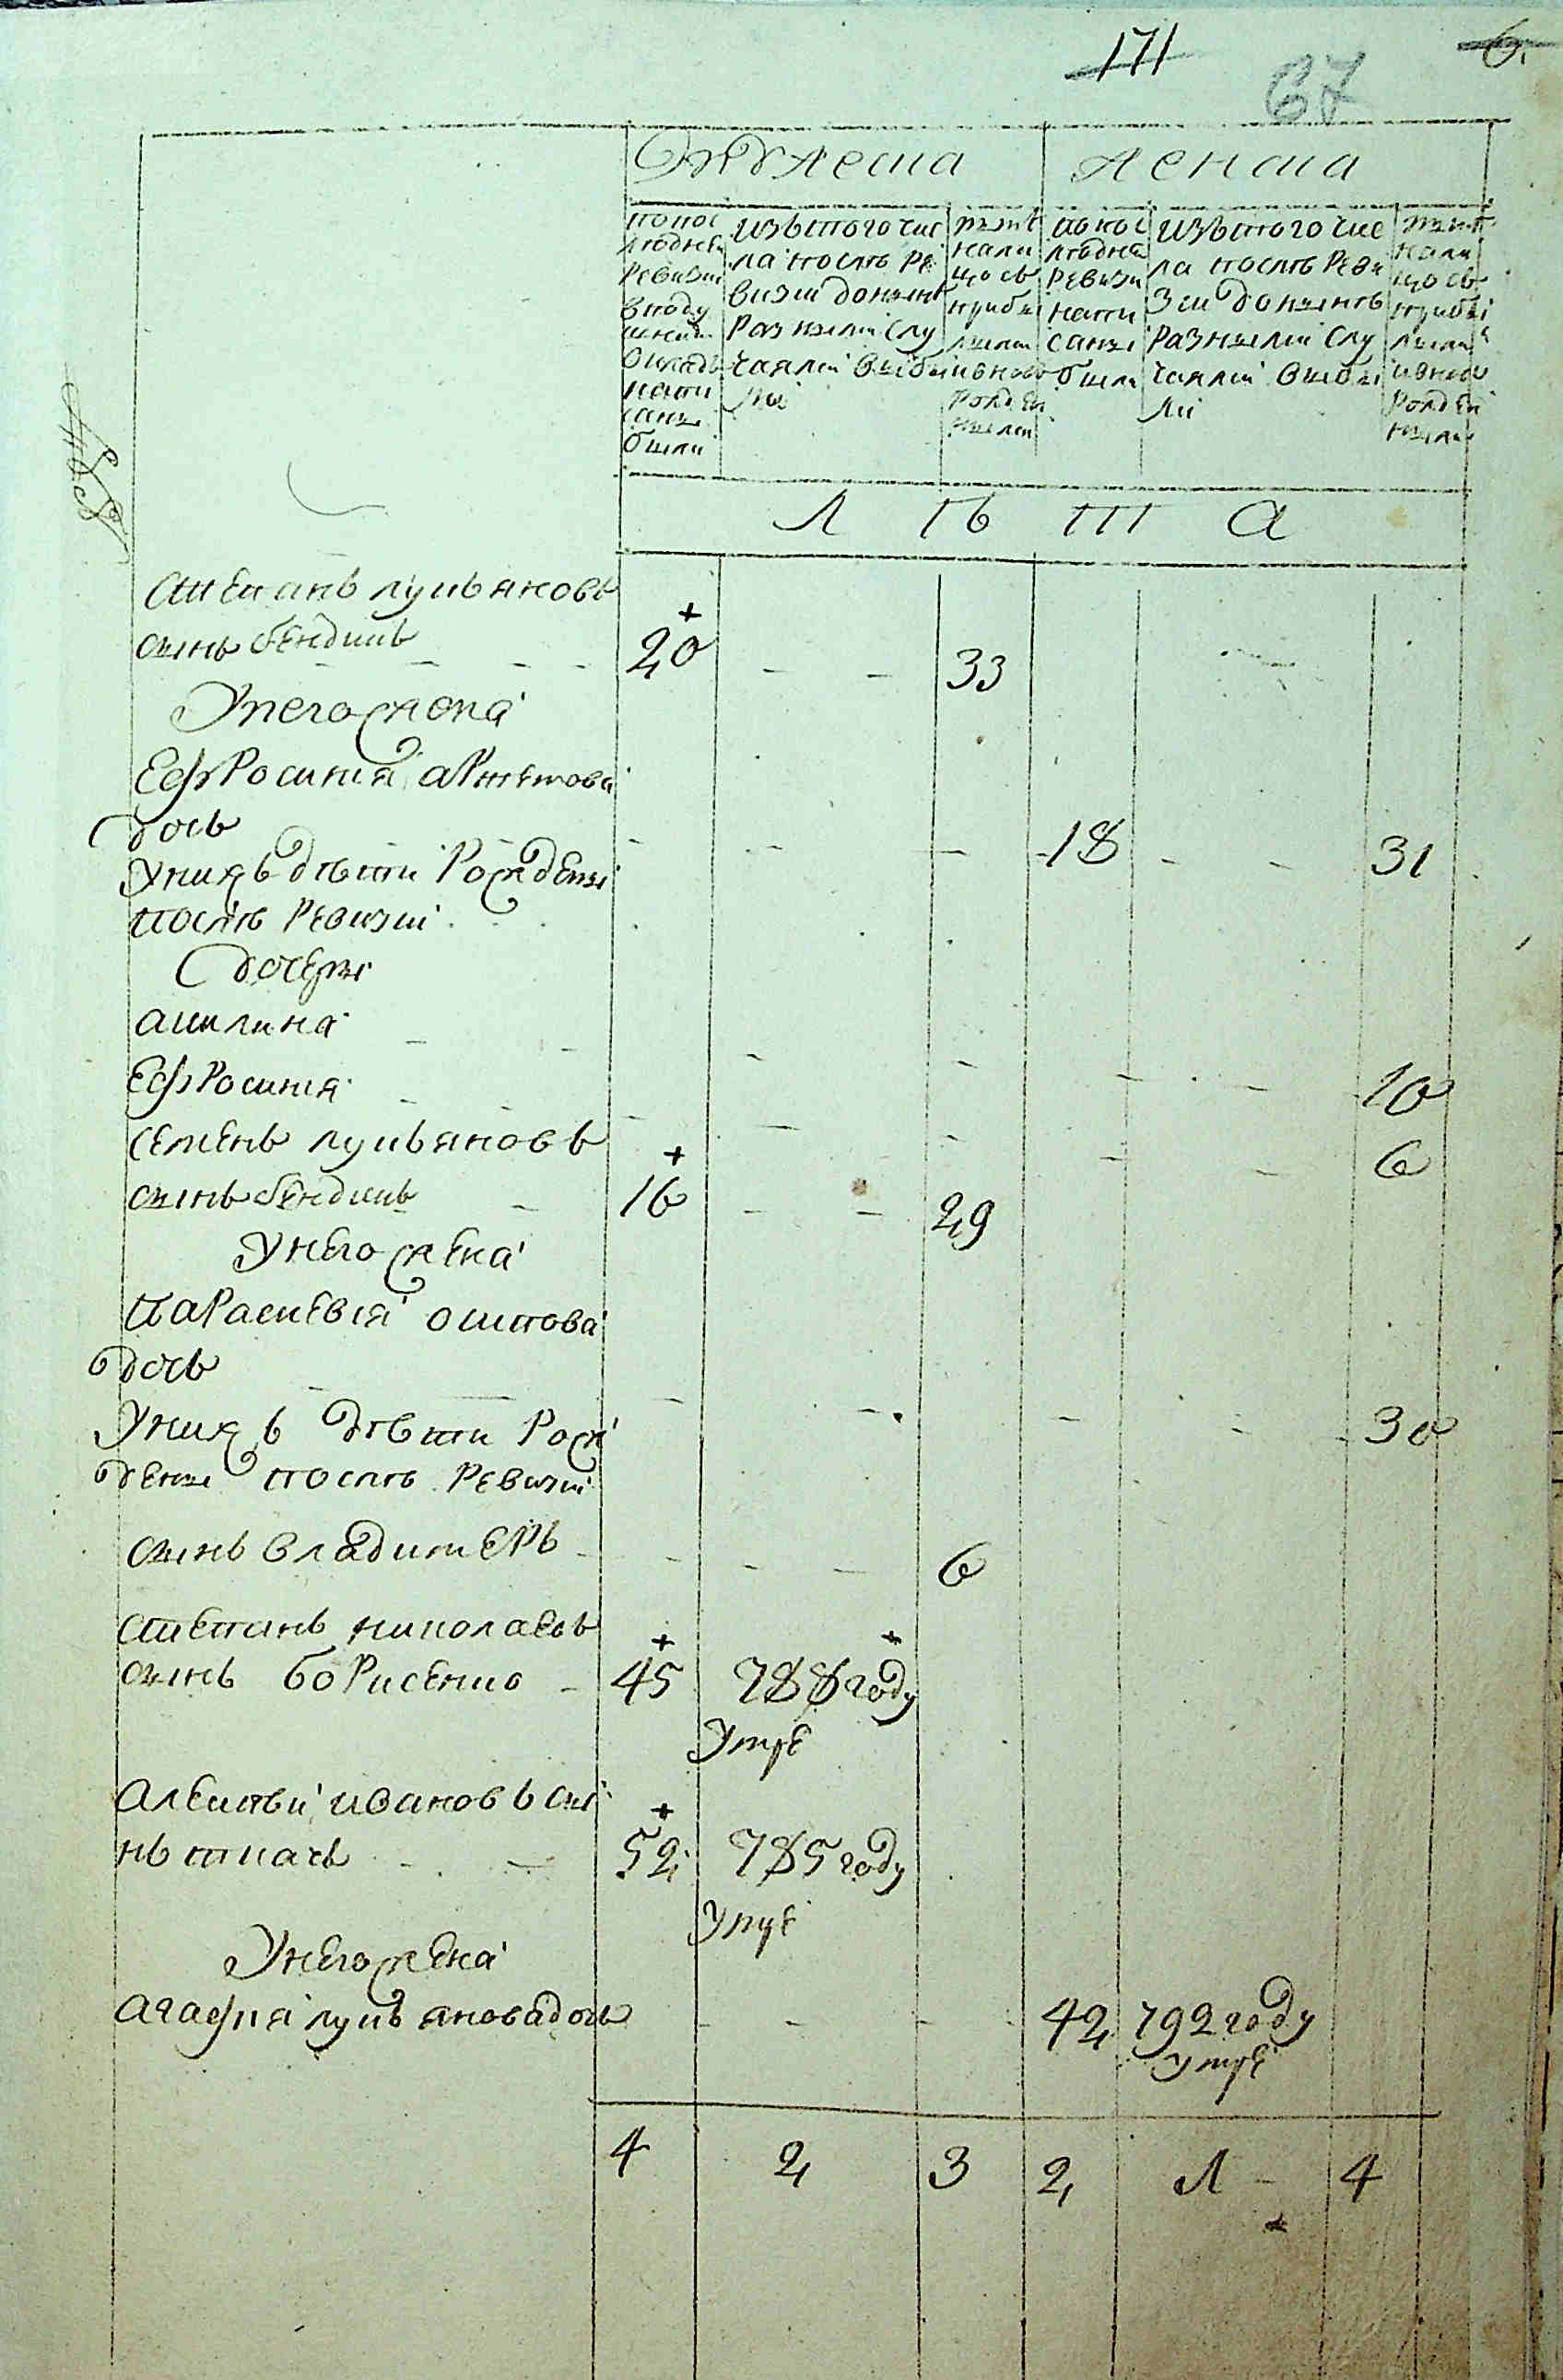 171
67
6.
Мужеска
женска
по пос
леднеи
ревизии
в поду
шном
окладъ
напи
саны
были
изъ того чис
ла послѣ ре
визии до нынѣ
разными слу
чаями выбы
ли
нынѣ
нали
цо съ
прибы
лыми
и вново
рожден
ными
по пос
ледней
ревизи
напи
саны
были
изъ того чис
ла послѣ реви
зии до нынѣ
разными слу
чаями выбы
ли
нынѣ
нали
цо съ
прибы
лыми
и вново
рожден
ными
Л ѣ т а
Степанъ лукьяновъ
сынъ бендикъ 20 33
У него жена
Ефросиния ахметова
дочь 18 31
У нихъ дѣти рожденны
послѣ ревизии
дочеры
акилина 10
Ефросиния 6
семенъ лукьяновъ
сынъ бендикъ 16 29
У него жена
параскевия осипова
дочь 30
У нихъ дѣти рож
денны послѣ ревизии
сынъ владимеръ 6
степанъ николаевъ
сынъ борисенко 45 788 году
умре
алексѣй ивановъ сы
нъ ткачъ 52 785 году
умре
У него жена
агафия лукьянова дочь 42 792 году
умре
4 2 3 2 1 4